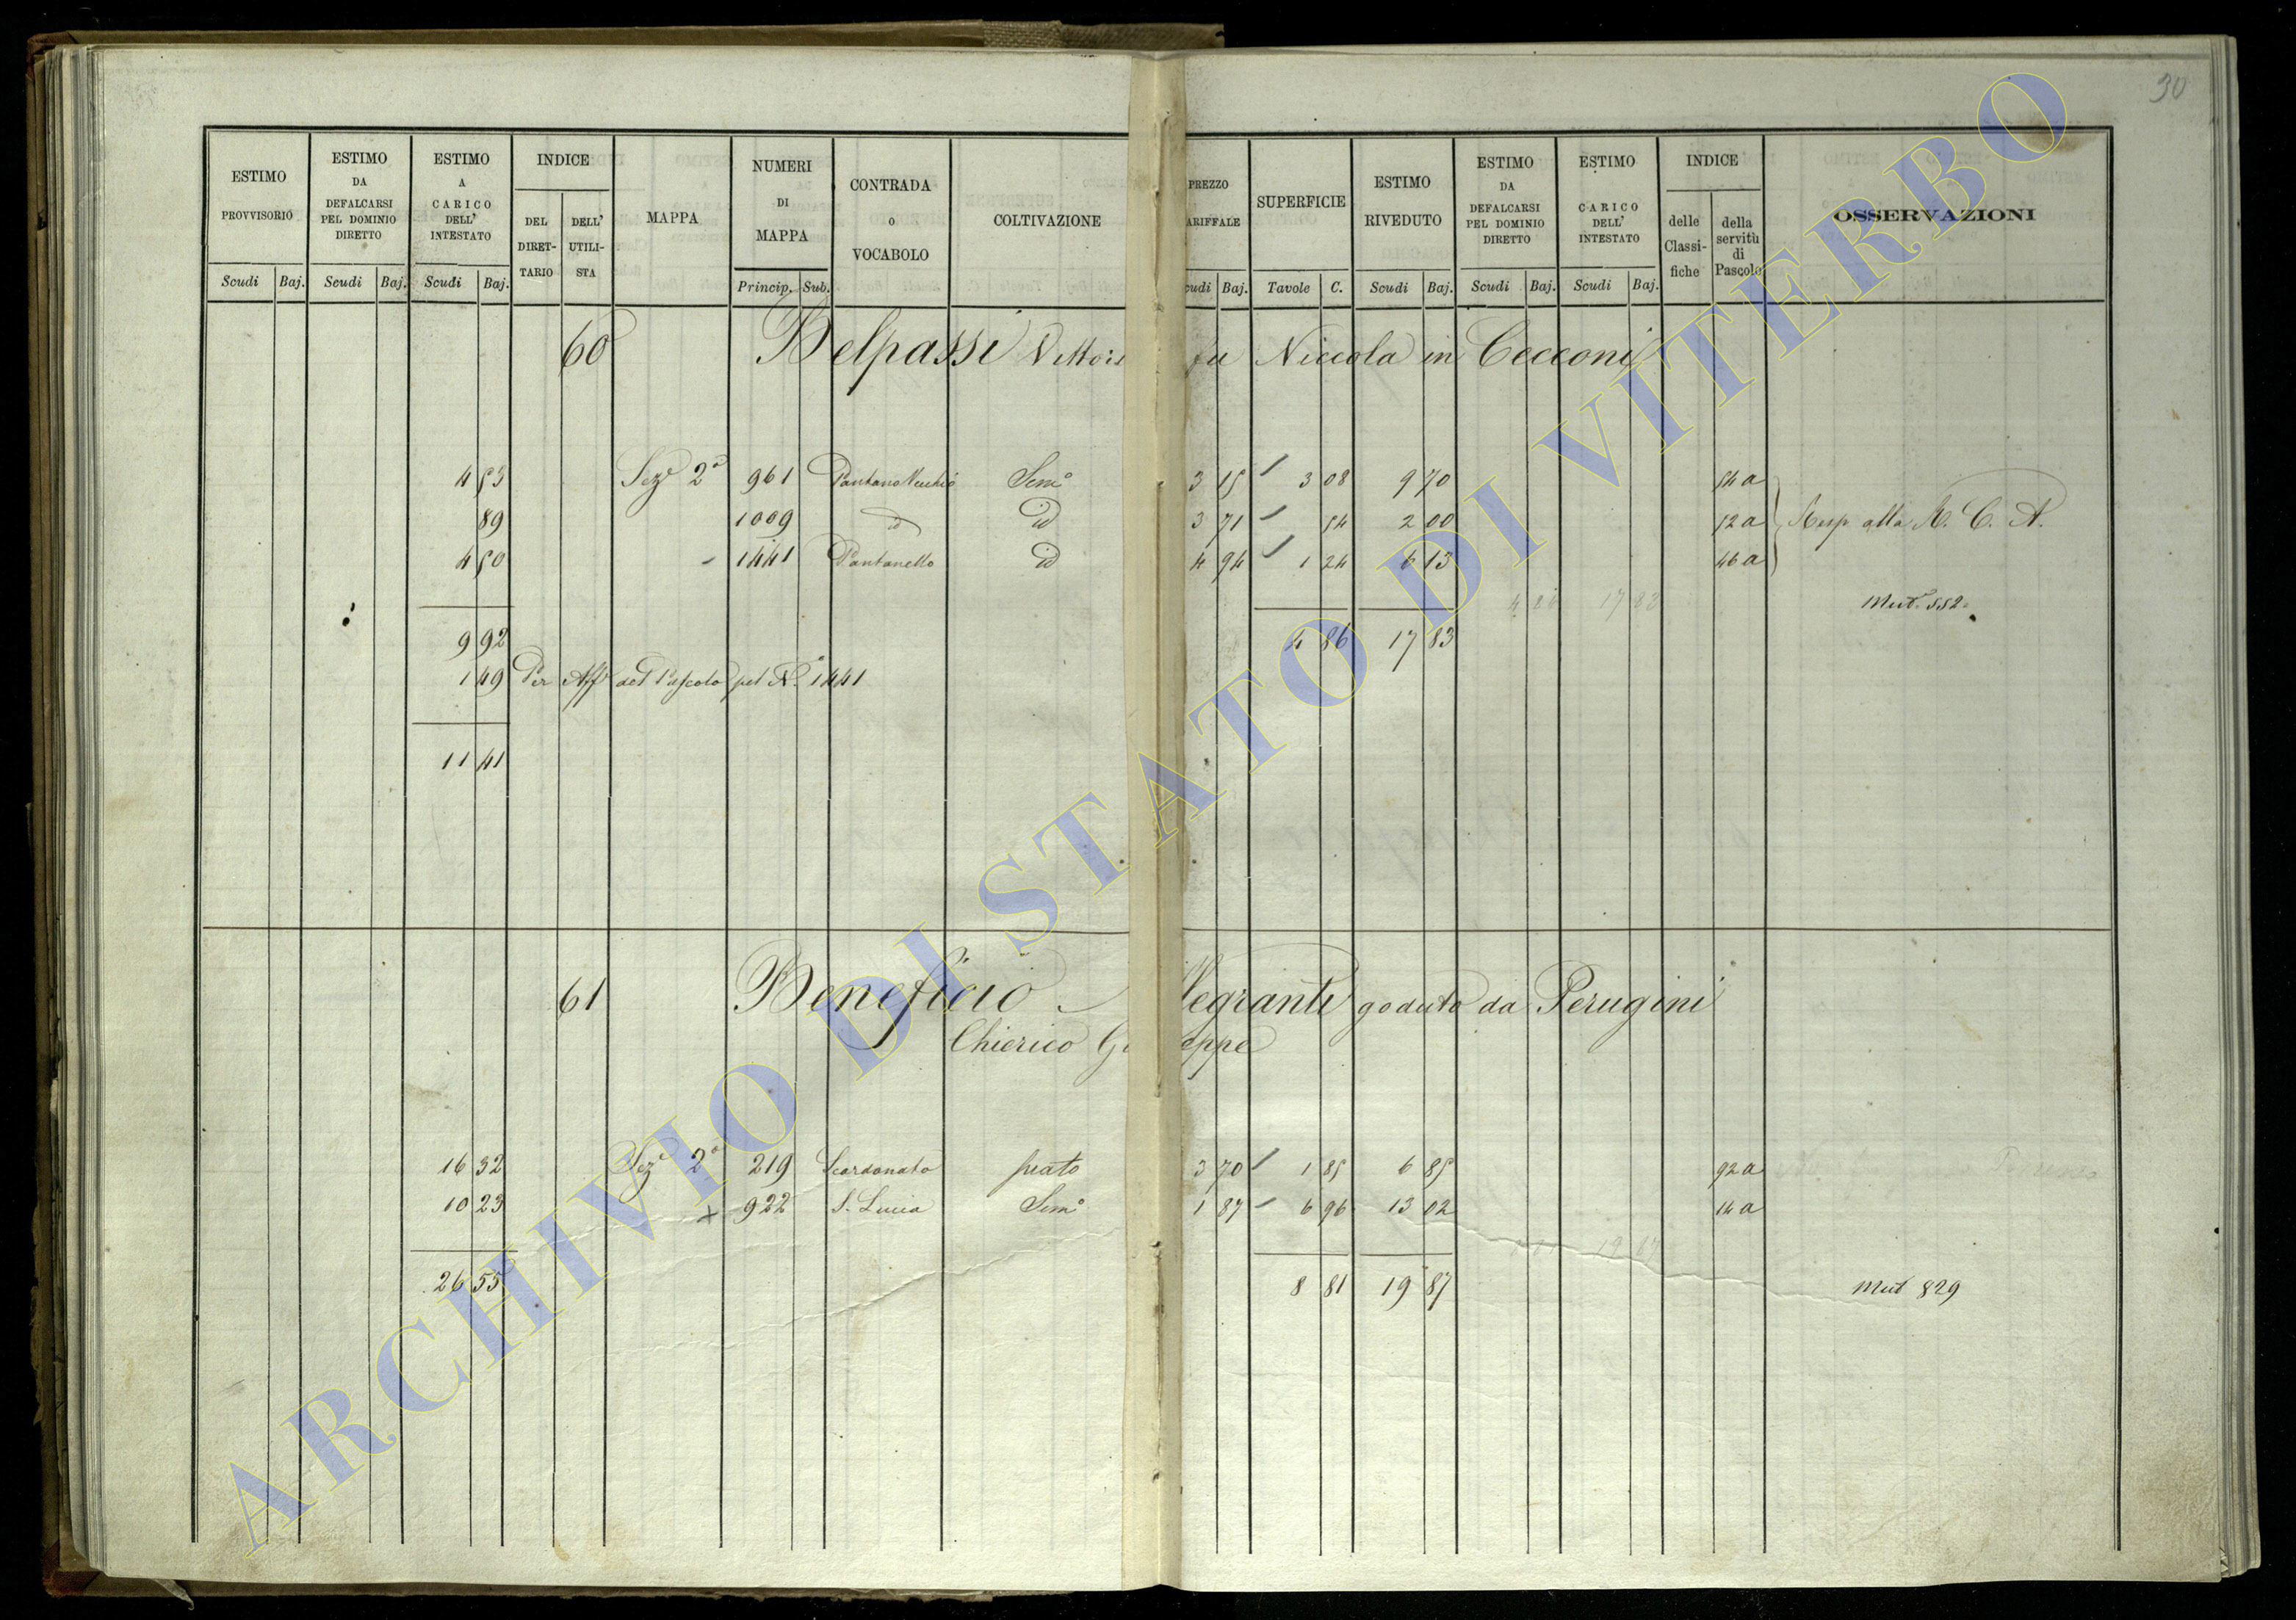 30
ESTIMO PROVVISORIO Scudi Baj.
ESTIMO DA DEFALCARSI PEL DOMINIO DIRETTO Scudi Baj.
ESTIMO A CARICO DELL' INTESTATO Scudi Baj.
INDICE DEL DIRET-TARIO DELL' UTILI-STA
MAPPA
NUMERI DI MAPPA Princip. Sub.
CONTRADA o VOCABOLO
COLTIVAZIONE
PREZZO ARIFFALE cudi Baj.
SUPERFICIE Tavole C.
ESTIMO RIVEDUTO Scudi Baj.
ESTIMO DA DEFALCARSI PEL DOMINIO DIRETTO Scudi Baj.
ESTIMO A CARICO DELL' INTESTATO Scudi Baj.
INDICE delle Classi-fiche della servitù di Pascolo
OSSERVAZIONI
60 Belpassi Vittori fu Niccola in Cecconi
4 53 Sez.e 2a 961 Pantano Vecchio Semo 3 15 3 08 9 70 54 a
89 1009 id id 3 71 54 2 00 52 a Resp alla R. C. A.
4 50 1441 Pantanello id 4 94 1 24 6 13 46 a
4 86 17 83 Mut. 552
9 92 4 86 17 83
1 49 Per Aff del Pascolo pel No 1441
11 41
61 Beneficio legranti goduto da Perugini
Chierico Gi eppe
16 32 Sez.e 2a 219 Scardonato prato 3 70 1 85 6 85 92 a
10 23 + 922 S. Lucia Semo 1 87 6 96 13 02 14 a
26 55 8 81 19 87 Mut 829
ARCHIVIO DI STATO DI VITERBO